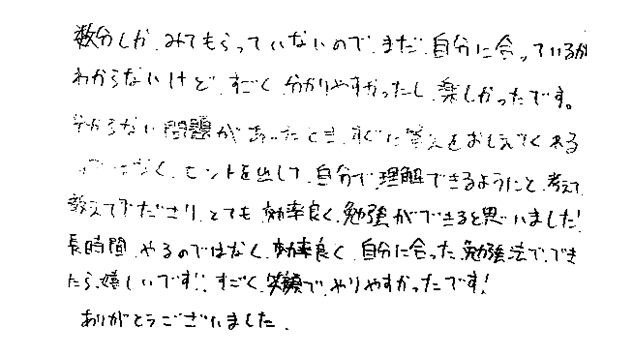 数分しか、みてもらっていないので、まだ、自分に合っているか
わからないけど、すごく、分かりやすかったし、楽しかったです。
分からない問題があったとき、すぐに答えをおしえてくれる
ではなく、ヒントを出して、自分で理解できるようにと、考えて、
教えて下ださり、とても効率良く、勉強ができると思いました!
長時間、やるのではなく、効率良く、自分に合った勉強法で、でき
たら、嬉しいです!!すごく、笑顔で、やりやすかったです!
ありがとうございました。